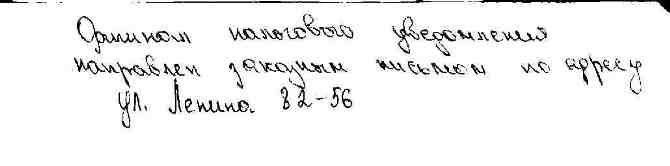 Оригинал налогового уведомления
направлен заказным письмом по адресу
ул. Ленина 82-56